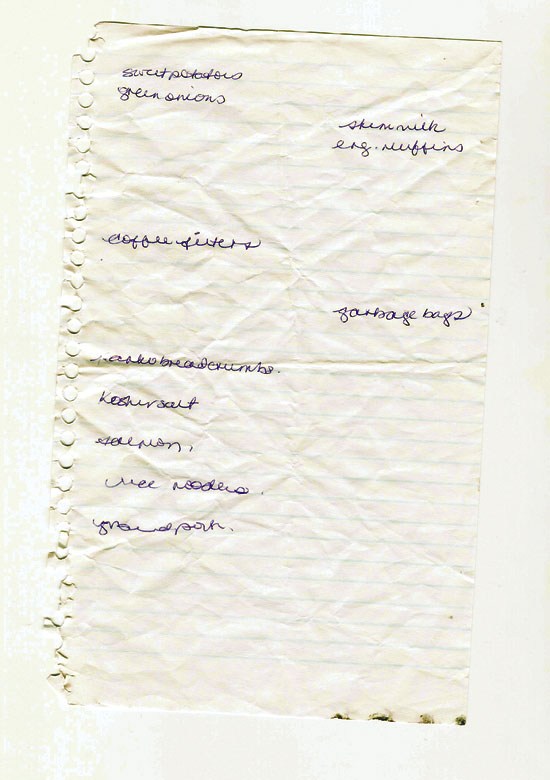 sweet potatoes
green onions
skim milk
eng. muffins
coffee filters
garbage bags
panko breadcrumbs.
Kosher salt
salmon.
rice noodles.
ground pork.